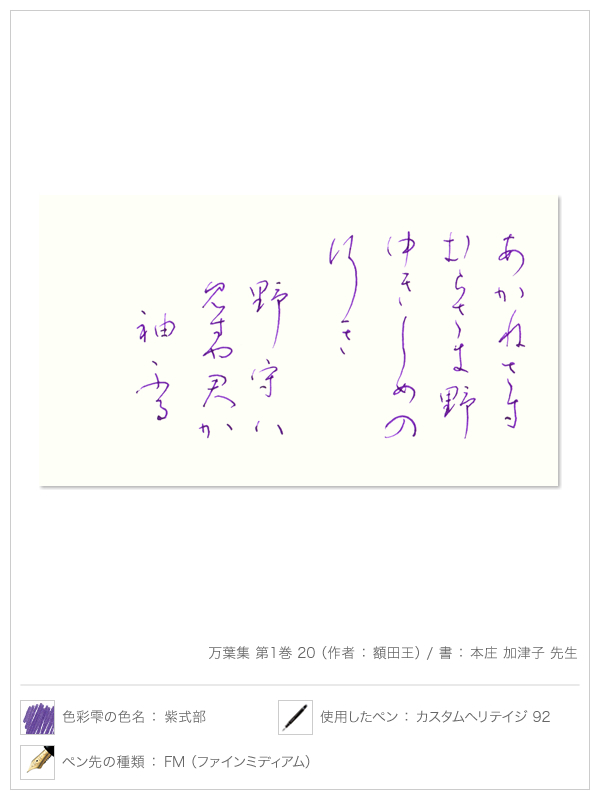 あかねさす
むらさき野
ゆきしめの
行き
野守ハ
見すや君か
袖ふる
万葉集 第1巻 20（作者：額田王）/ 書：本庄 加津子 先生
色彩雫の色名：紫式部
使用したペン：カスタムヘリテイジ 92
ペン先の種類：FM（ファインミディアム）